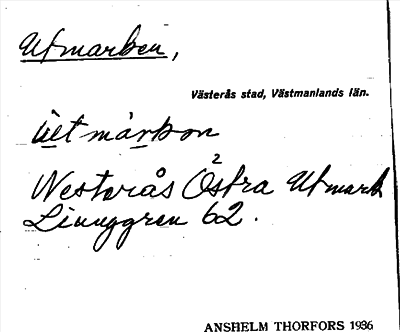 Utmarken,
Västerås stad, Västmanlands län.
ùtmàrkon
2
Westerås Östra Utmark
Ljunggren 62.
ANSHELM THORFORS 1936